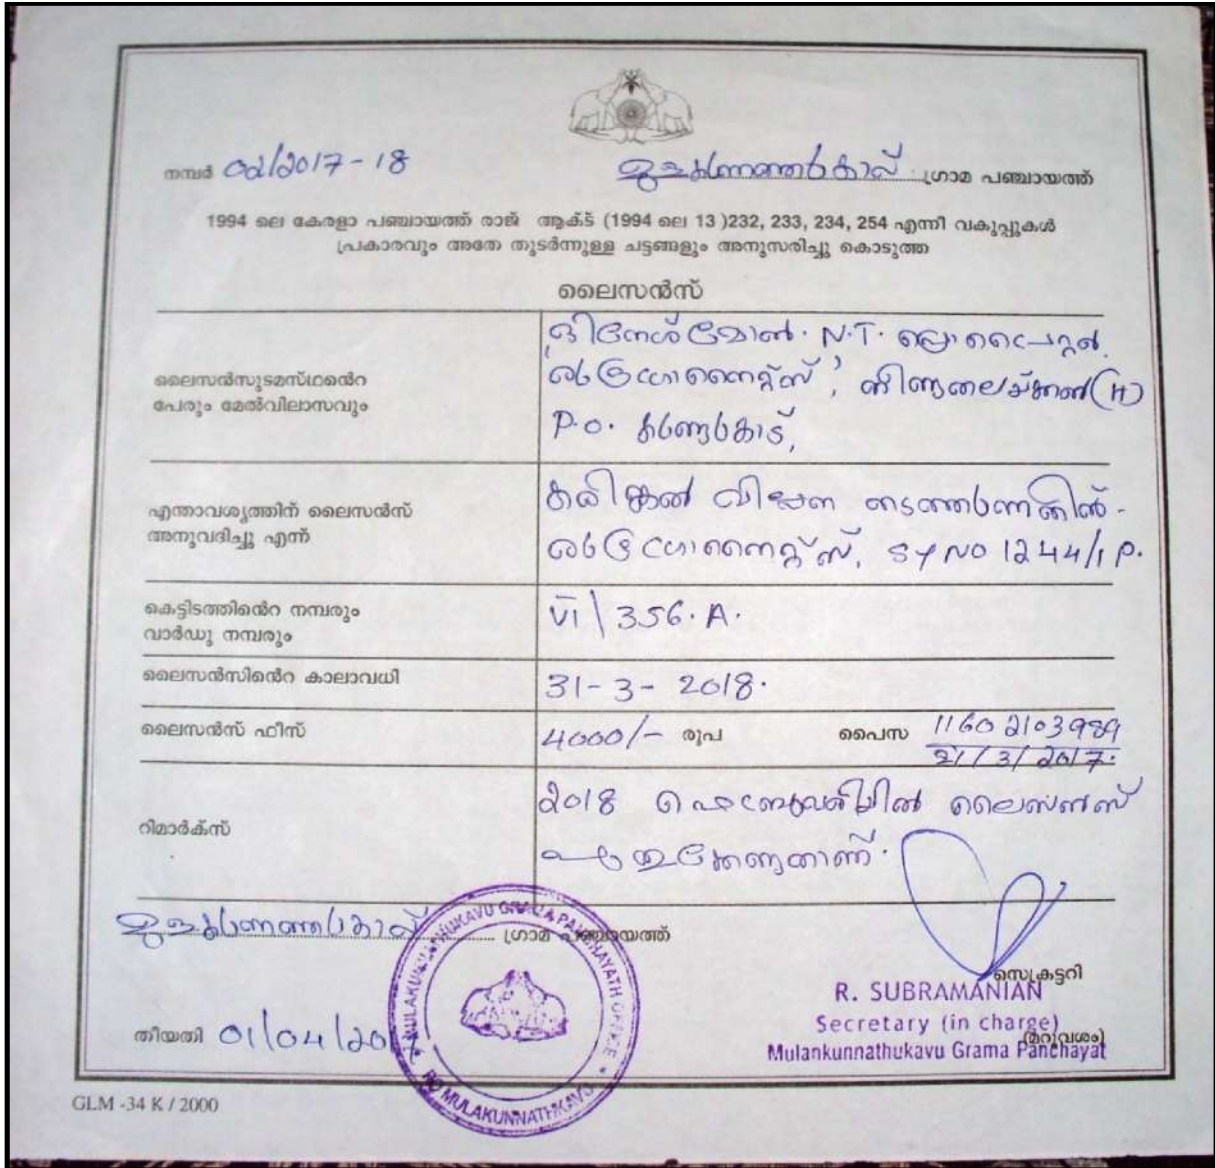 നമ്പർ 02/2017-18 ഗ്രാമ പഞ്ചായത്ത്
1994 ലെ കേരളാ പഞ്ചായത്ത് രാജ് ആക്ട് (1994 ലെ 13 )232, 233, 234, 254 എന്നീ വകുപ്പുകൾ
പ്രകാരവും അതേ തുടർന്നുള്ള ചട്ടങ്ങളും അനുസരിച്ചു കൊടുത്ത
ലൈസൻസ്
ലൈസൻസുടമസ്ഥന്റെ
പേരും മേൽവിലാസവും
N.T.
(H)
P.O.
എന്താവശ്യത്തിന് ലൈസൻസ്
അനുവദിച്ചു എന്ന്
കരിങ്കൽ വില്പന
Sy NO 1244/1 P.
കെട്ടിടത്തിന്റെ നമ്പരും
വാർഡു നമ്പരും
VI \ 356. A.
ലൈസൻസിന്റെ കാലാവധി
31-3-2018.
ലൈസൻസ് ഫീസ്
4000/- രൂപ പൈസ 1160 2103989
21/3/2017.
റിമാർക്സ്
2018 ഫെബ്രുവരിയിൽ ലൈസൻസ്
പുതുക്കേണ്ടതാണ്.
ഗ്രാമ പഞ്ചായത്ത്
MULAKUNNATHUKAVU GRAMA PANCHAYATH OFFICE
PO MULAKUNNATHKAVU
സെക്രട്ടറി
R. SUBRAMANIAN
Secretary (in charge)
(മറുവശം)
Mulankunnathukavu Grama Panchayat
തിയതി 01/04/201
GLM -34 K / 2000